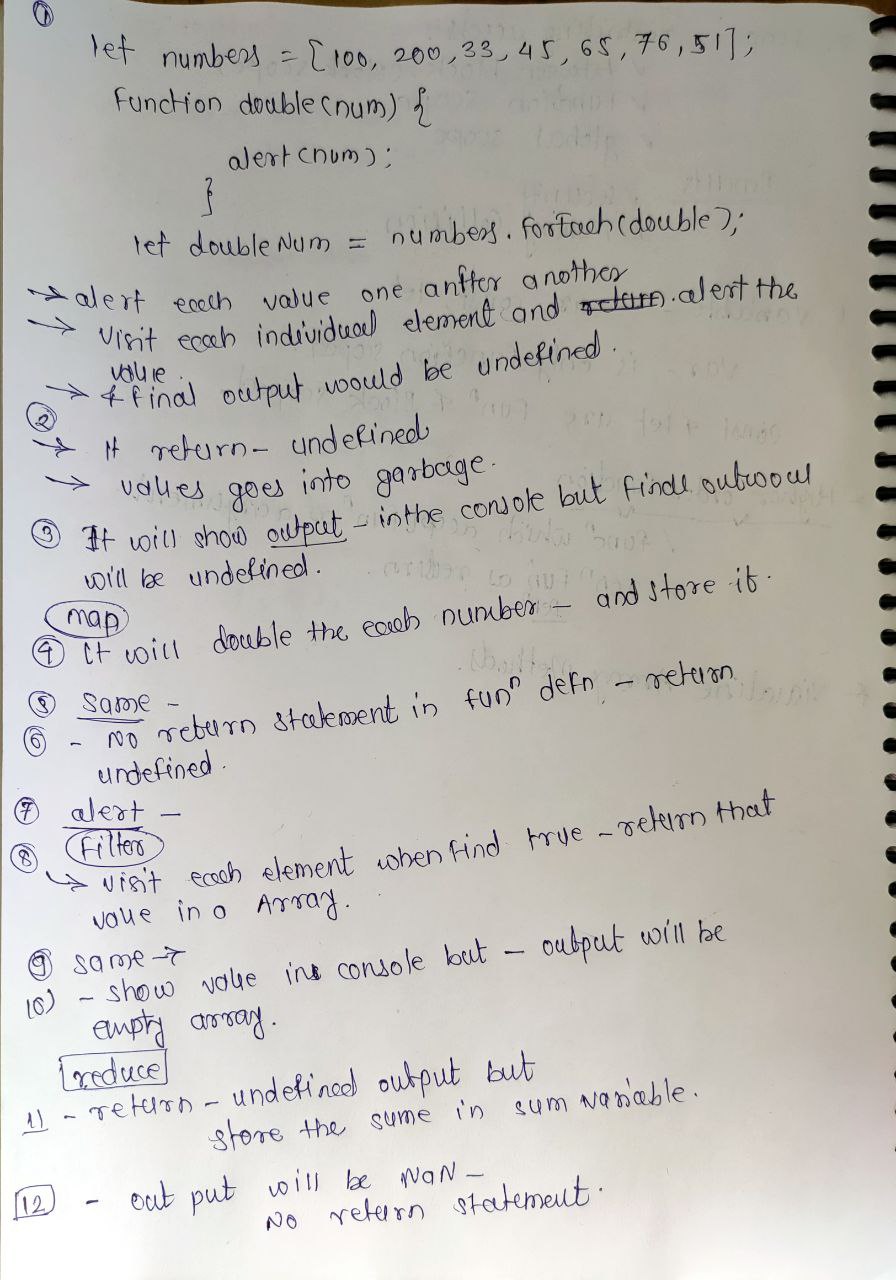 ①
let numbers = [100, 200, 33, 45, 65, 76, 51];
function double(num) {
alert(num);
}
let doubleNum = numbers.forEach(double);
→ alert each value one anfter another
→ visit each individual element and return. alert the
value.
→ & final output would be undefined.
②
→ It return - undefined
→ values goes into garbage.
③ It will show output - in the console but final
will be undefined.
map
④ It will double the each number - and store it.
⑤ same -
⑥ - No return statement in funⁿ defn. - return
undefined.
⑦ alert -
⑧ Filter
→ visit each element when find true - return that
value in a Array.
⑨ same →
10) - show value in console but - output will be
empty array.
reduce
11 - return - undefined output but
store the sume in sum variable.
12 - out put will be NaN -
No return statement.